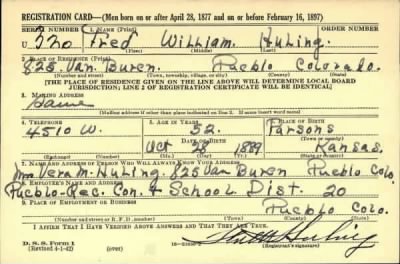 REGISTRATION CARD—(Men born on or after April 28, 1877 and on or before February 16, 1897)
SERIAL NUMBER 1. NAME (Print) ORDER NUMBER
U 320 Fred William Huling
(First) (Middle) (Last)
2. PLACE OF RESIDENCE (Print)
825 Van Buren Pueblo Colorado
(Number and street) (Town, township, village, or city) (County) (State)
[THE PLACE OF RESIDENCE GIVEN ON THE LINE ABOVE WILL DETERMINE LOCAL BOARD
JURISDICTION; LINE 2 OF REGISTRATION CERTIFICATE WILL BE IDENTICAL]
3. MAILING ADDRESS
Same
[Mailing address if other than place indicated on line 2. If same insert word same]
4. TELEPHONE 5. AGE IN YEARS 6. PLACE OF BIRTH
4510 W. 52 Parsons
DATE OF BIRTH (Town or county)
Oct 28 1889 Kansas
(Number) (Mo.) (Day) (Yr.) (State or country)
7. NAME AND ADDRESS OF PERSON WHO WILL ALWAYS KNOW YOUR ADDRESS
Mrs Vera M. Huling. 825 Van Buren Pueblo Colo
8. EMPLOYER'S NAME AND ADDRESS
Pueblo-Rec. Con. & School Dist. 20
9. PLACE OF EMPLOYMENT OR BUSINESS
Pueblo Colo.
(Number and street or R. F. D. number) (Town) (County) (State)
I AFFIRM THAT I HAVE VERIFIED ABOVE ANSWERS AND THAT THEY ARE TRUE.
D. S. S. Form 1
(Revised 4-1-42) (over) (Registrant's signature)